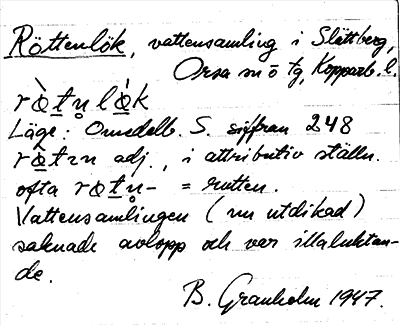 Röttenlök, vattensamling i Slättberg,
Orsa sn ö tg, Kopparb. l.
rö̀t̲n̥ lö̀k
Läge: Omedelb. S. siffran 248
rö̀t̲ɪn adj., i attributiv ställn.
ofta röt̲n̥- = rutten.
Vattensamlingen (nu utdikad)
saknade avlopp och var illaluktan-
de.
B. Granholm 1947.